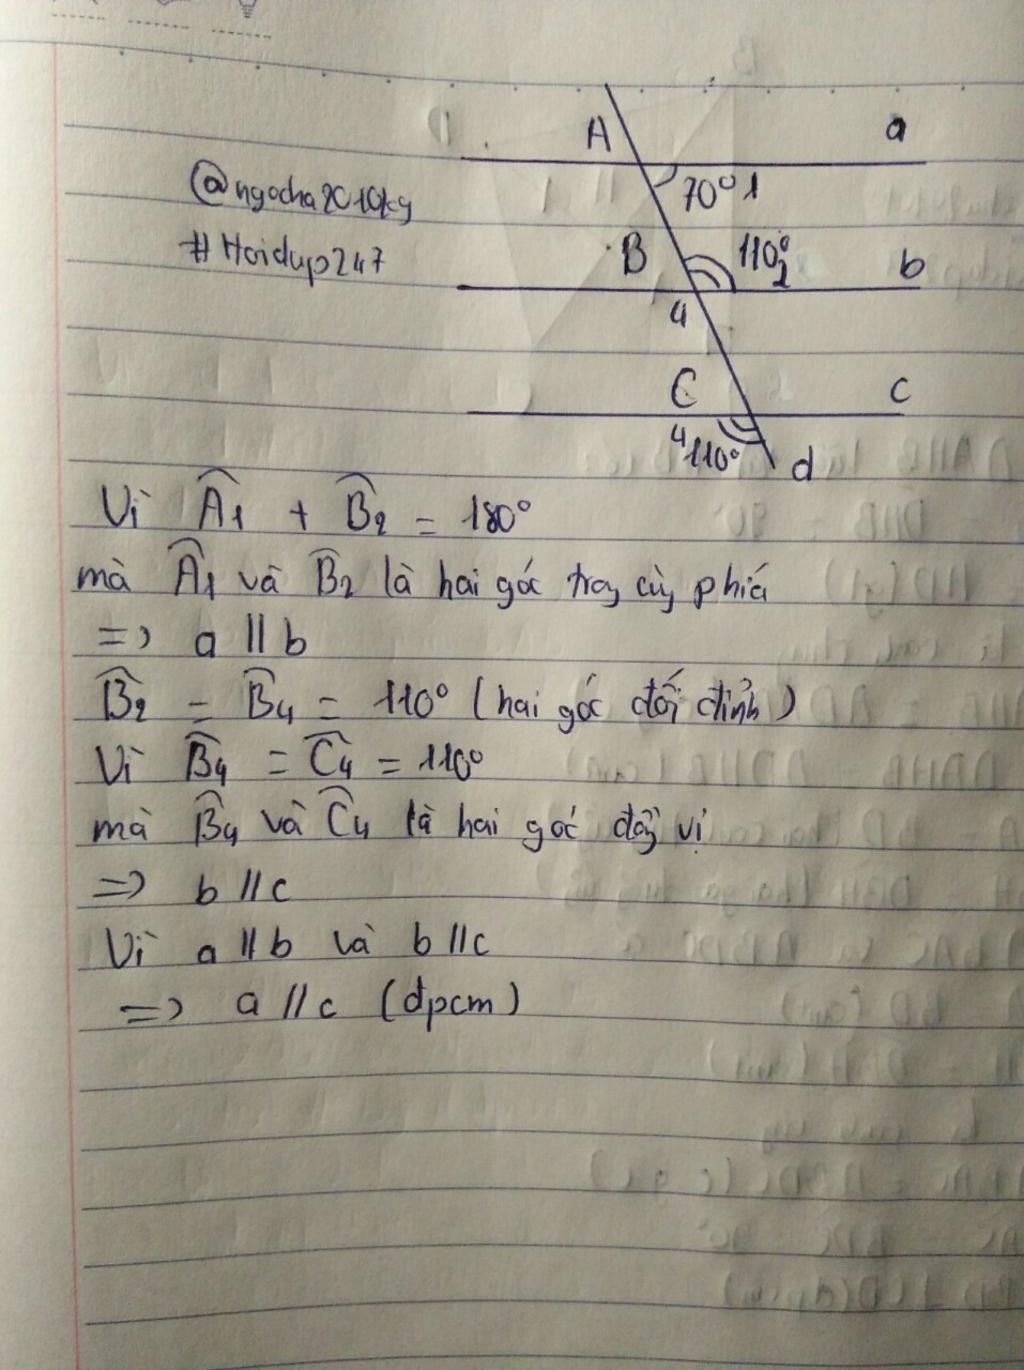 A a
70° 1
@ngocha2010kg
#Hoidap247
B 110° 2 b
4
C c
4 110° d
Vì Â1 + B̂2 = 180°
mà Â1 và B̂2 là hai góc trog cùg phía
=> a // b
B̂2 = B̂4 = 110° (hai góc đối đỉnh)
Vì B̂4 = Ĉ4 = 110°
mà B̂4 và Ĉ4 là hai góc đồg vị
=> b // c
Vì a // b và b // c
=> a // c (đpcm)